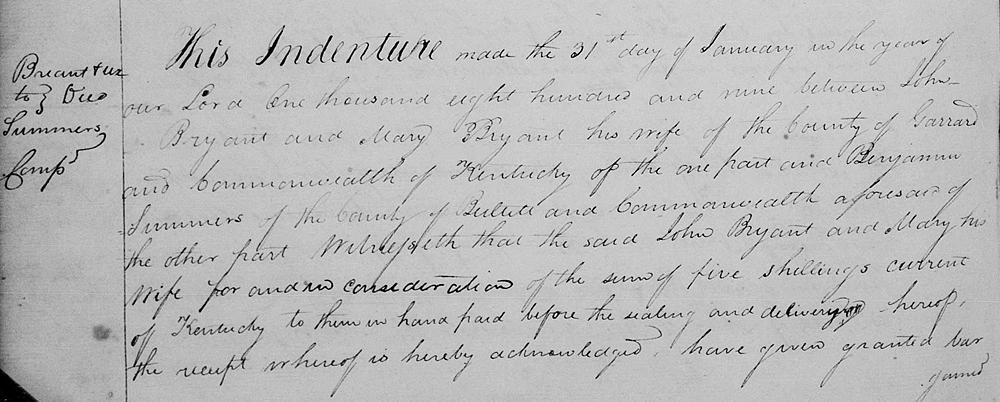 Breant & ux
to } Deed
Summers
Comp^d
This Indenture made the 31^st day of January in the year of
our Lord One thousand eight hundred and nine between John
Bryant and Mary Bryant his wife of the County of Garrard
and Commonwealth of Kentucky of the one part and Benjamin
Summers of the County of Bullett and Commonwealth aforesaid of
the other part Witnesseth that the said John Bryant and Mary his
Wife for and in consideration of the sum of five shillings current
of Kentucky to them in hand paid before the sealing and delivery hereof,
the receipt whereof is hereby acknowledged, have given granted bar
gained